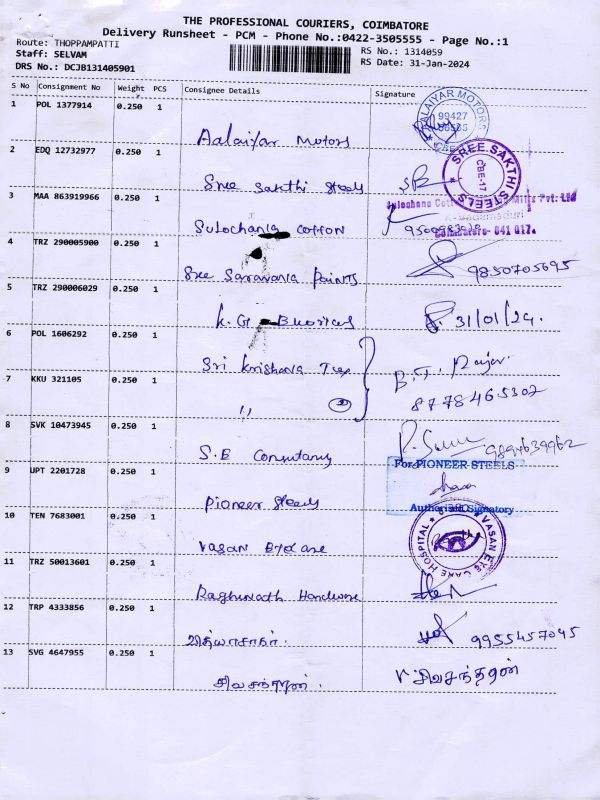 THE PROFESSIONAL COURIERS, COIMBATORE
Delivery Runsheet - PCM - Phone No.:0422-3505555 - Page No.:1
Route: THOPPAMPATTI
RS No.: 1314059
Staff: SELVAM
RS Date: 31-Jan-2024
DRS No.: DCJB131405901
S No Consignment No Weight PCS Consignee Details Signature
1 POL 1377914 0.250 1
AALAIYAR MOTORS
99427
Aalaiyar Motors
2 EDQ 12732977 0.250 1
SREE SAKTHI STEELS
CBE-17
Sree Sakthi Steels SB
3 MAA 863919966 0.250 1
Sulochana Cotton Mills Pvt: Ltd
Coimbatore- 641 017.
Sulochana Cotton
4 TRZ 290005900 0.250 1
Sree Saravana Paints 9850705695
5 TRZ 290006029 0.250 1
K.G 31/01/24.
6 POL 1606292 0.250 1
Sri Krishana Tex B.T.
7 KKU 321105 0.250 1
8778465302
" 2
8 SVK 10473945 0.250 1
9894639962
S.B Consultancy
For PIONEER STEELS
9 UPT 2201728 0.250 1
Pioneer Steels
Authorised Signatory
10 TEN 7683001 0.250 1
VASAN EYE CARE HOSPITAL
Vasan Eyecare
11 TRZ 50013601 0.250 1
Raghunath Hardware
12 TRP 4333856 0.250 1
வித்யாசாகர். 9955457045
13 SVG 4647955 0.250 1
சிவசந்திரன். V.சிவசந்திரன்